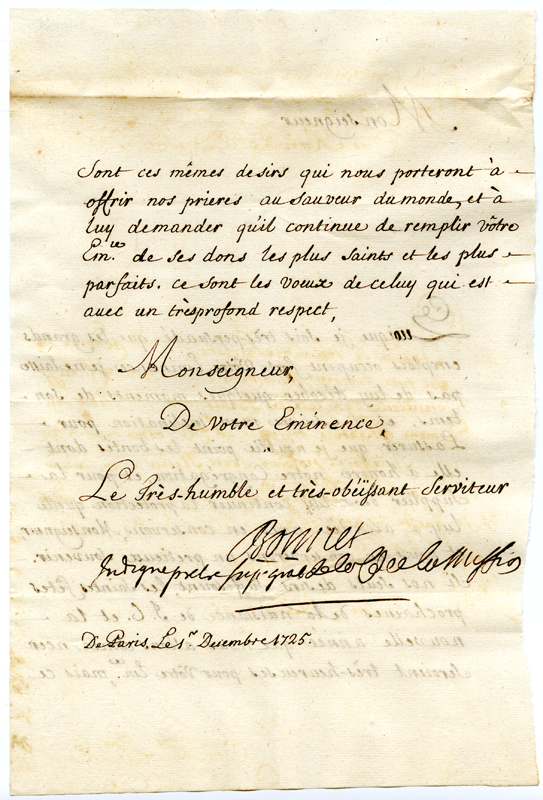 Sont ces mêmes desirs qui nous porteront à
offrir nos prieres au Sauveur du monde, et à
luy demander qu'il continue de remplir vôtre
Em.ce de ses dons les plus saints et les plus
parfaits. ce sont les vœux de celuy qui est
avec un trèsprofond respect,
Monseigneur,
De Votre Eminence,
Le Très-humble et très-obéïssant Serviteur
Bonnet
Indigne prêtre Sup. gnal de la C. de la Mission
De Paris. Le 1.r Desembre 1725.